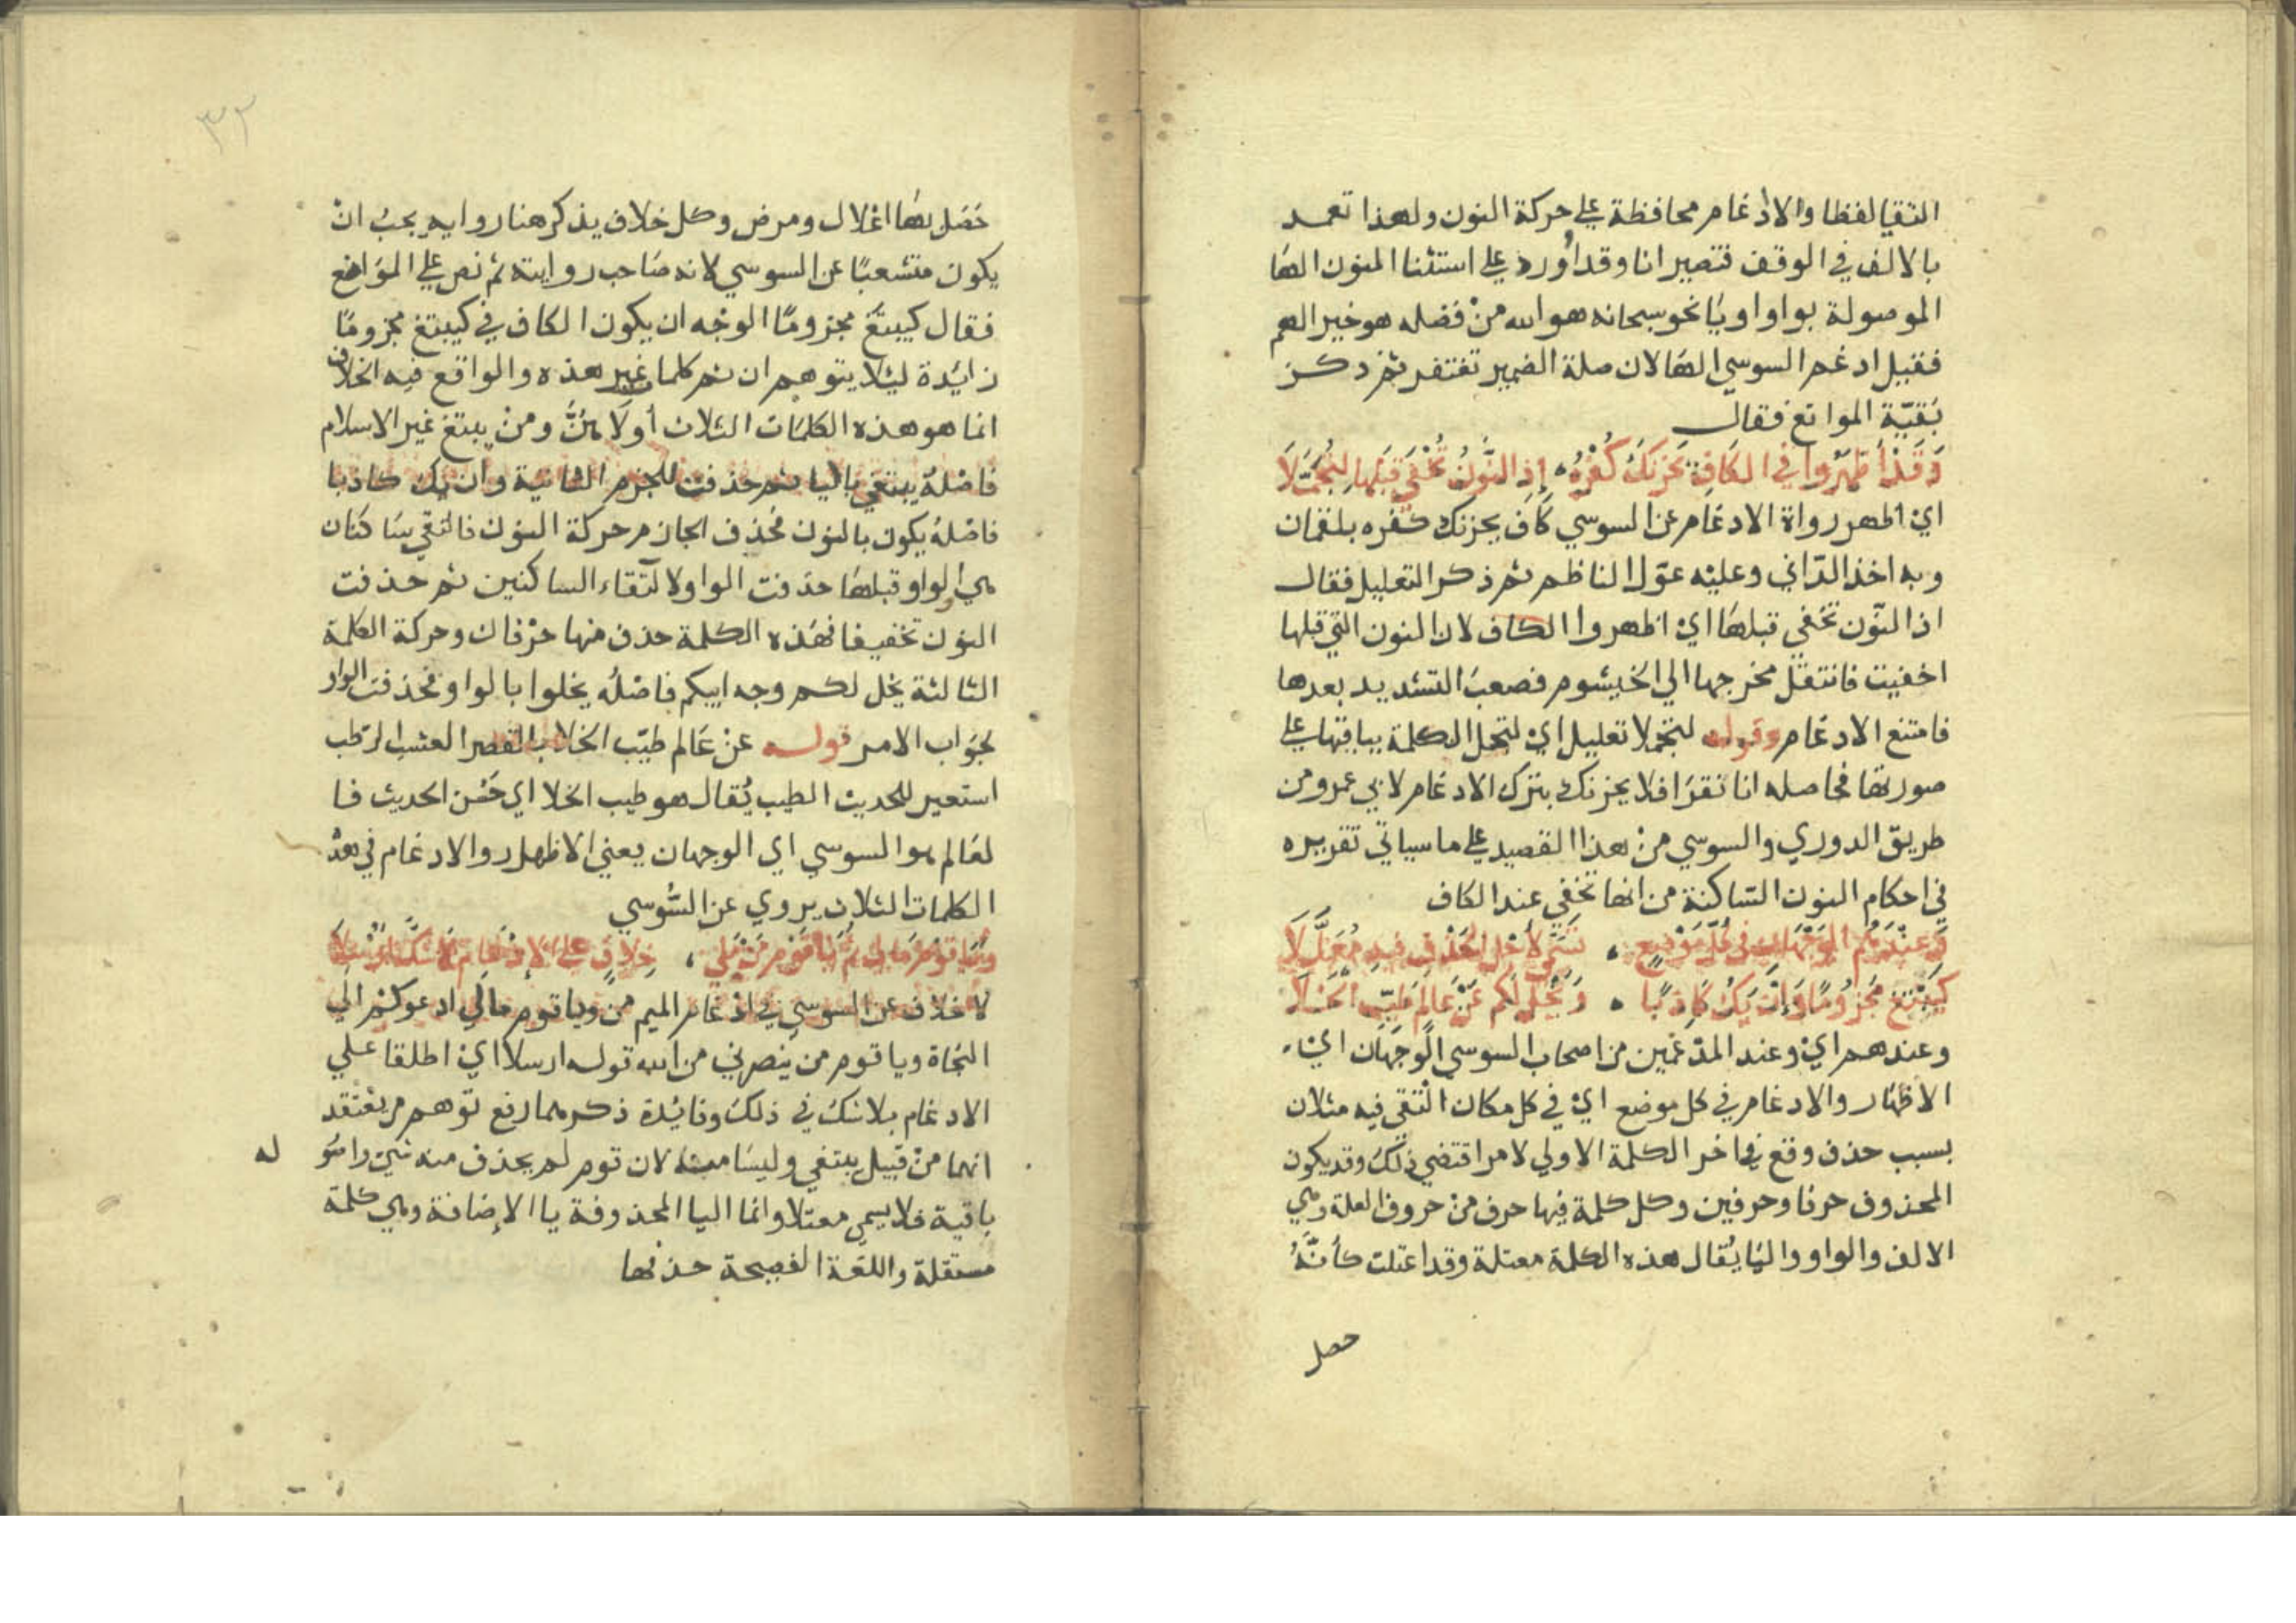 التقيا لفظا والادغام محافظة على حركة النون ولهذا تعمد
بالالف في الوقف فتصير انا وقد أورد على استثنا المنون الها
الموصولة بواو او يا نحو سبحانه هو الله من فضله هو خير الهم
فقيل ادغم السوسي الها لان صلة الضمير تغتفر ثم ذكر
بقيّة الموانع فقال
وَقَدْ أَظْهَرُوا فِي الكَافِ يَحْزُنْكَ كُفْرُهُ، إذِ النُّونُ تُخْفَى قَبْلَهَا لِتُجَمَّلَا
اي اظهر رواة الادغام عن السوسي كاف يحزنك كفره بلقمان
وبه اخذ الدّاني وعليه عوّل الناظم ثم ذكر التعليل فقال
اذ النّون تخفي قبلها اي اظهروا الكاف لان النون التي قبلها
اخفيت فانتقل مخرجها الي الخيشوم فصعب التشديد بعدها
فامتنع الادغام وقوله لتجملا تعليل اي لتجمل الكلمة ببابقتها على
صورتها فحاصله انا نقرا فلا يحزنك بترك الادغام لابي عمرو من
طريق الدوري والسوسي من هذا القصيد على ما سياتي تقريره
في احكام النون السّاكنة من انها تخفي عند الكاف
وَعِنْدَهُمُ الوَجْهَانِ فِي كُلِّ مَوْضِعٍ ، تَسَمَّى لأجْلِ الحَذْفِ فِيهِ مُعَلَّلَا
كَيَبْتَغِ مَجْزُومًا وَإنْ يَكُ كَاذِبًا ، وَيَخْلُ لَكُم عَنْ عَالِمٍ طَيِّبِ الخَلَا
وعندهم اي وعند المدغمين من اصحاب السوسي الوجهان اي
الاظهار والادغام في كل موضع اي في كل مكان التقي فيه مثلان
بسبب حذف وقع في اخر الكلمة الاولي لامر اقتضي ذلك وقد يكون
المحذوف حرفا وحرفين وكل كلمة فيها حرف من حروف العلة وهي
الالف والواو واليا يُقال هذه الكلمة معتلة وقد اعتلت كأنّهُ
حصل
٣٢
حَصَل بها اعْلال ومرض وكل خلاف يذكر هنا رواية يجب ان
يكون متشعبًا عن السوسي لانه صاحب روايته ثم نص على المواضع
فقال كيبتغ مجزومًا الوجه ان يكون الكاف في كيبتغ مجزومًا
زايدة ليلا يتوهم ان ثم كلما غير هذه والواقع فيه الخلاف
انما هو هذه الكلمات الثلاث أولاهنَّ ومن يبتغ غير الاسلام
فاصْلهُ يبتغي باليا ثم حذفت للجزم الثانية وان يك كاذبا
فاصْلهُ يكون بالنون فحذف الجازم حركة النون فالتقي ساكنان
هي والواو قبلها حذفت الواو لالتقاء الساكنين ثم حذفت
النون تخفيفا فهذه الكلمة حذف منها حرْفان وحركة الكلمة
الثالثة يخل لكم وجه ابيكم فاصْلُه يخلوا بالواو فحذفت الواو
لجواب الامر قوله عن عَالم طيّب الخلا بالقصر العشب الرّطب
استعير للحديث الطيب يُقال هو طيب الخلا اي حَسن الحديث فا
لعَالم هو السوسي اي الوجهان يعني الاظهار والادغام في هذه
الكلمات الثلاث يروي عن السُّوسي
وَيَا قَوْمِ مَالِي ثُمَّ يَا قَوْمِ مَنْ بِلَا ، خِلَافٍ عَلَى الإدْغَامِ لَا شَكَّ أُرْسِلَا
لا خلاف عن السوسي في ادْغام الميم من ويا قوم مالي ادعوكم الي
النجاة ويا قوم من ينصرني من الله قوله ارسلا اي اطلقا علي
الادغام بلا شك في ذلك وفائدة ذكرهما رفع توهم من يعْتقد
انهما من قبيل يبتغي وليسا مثله لان قوم لم يحذف منه شي واصو له
باقية فلا يسمى معتلا وانما اليا المحذوفة يا الإضافة وهي كلمة
مستقلة واللغة الفصيحة حذفها